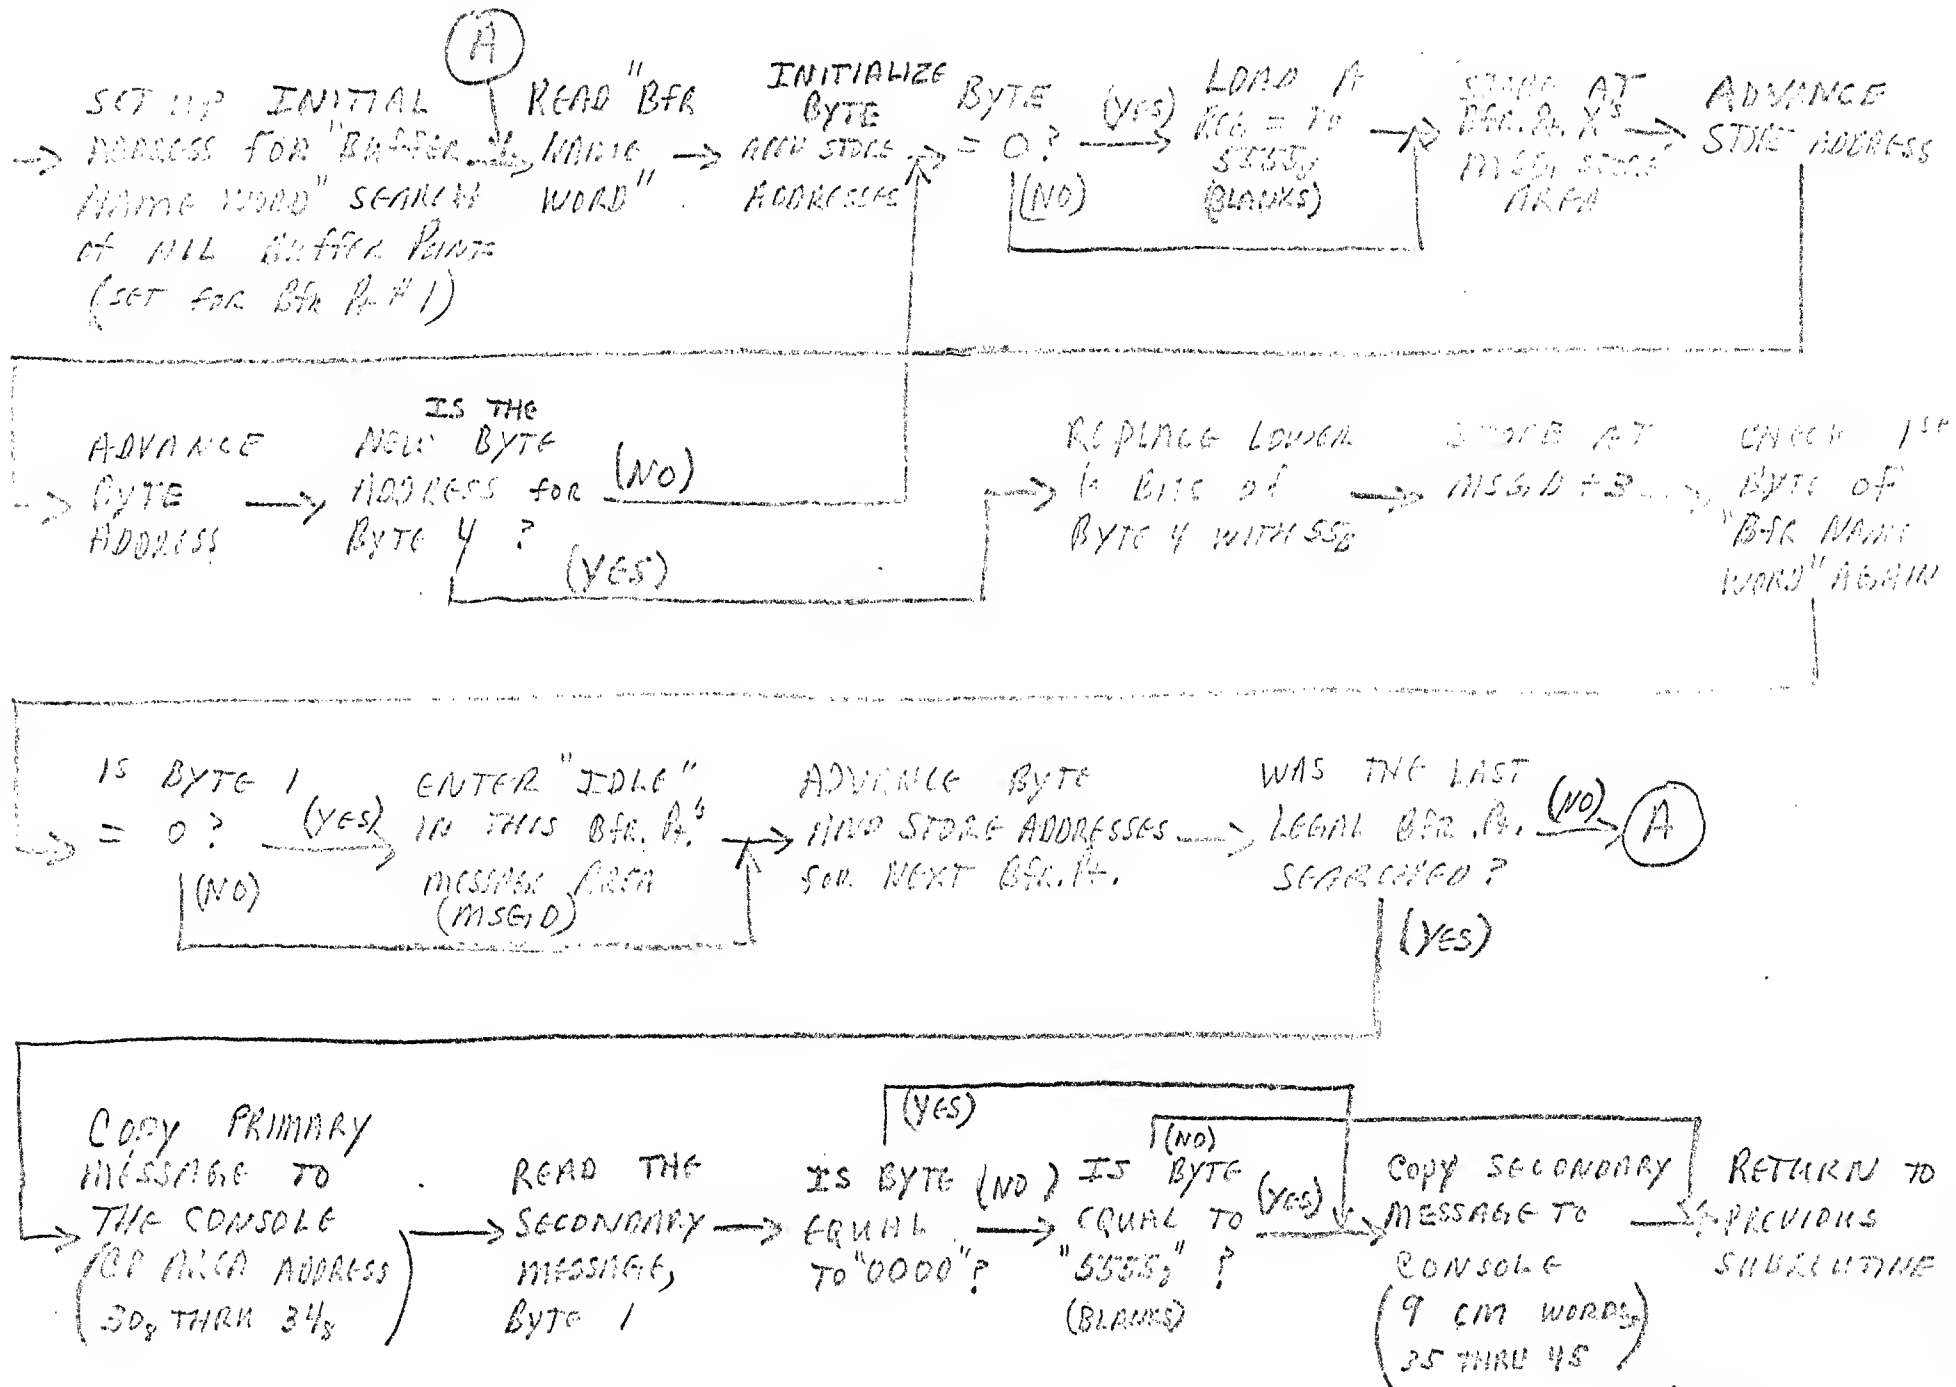 A
SET UP INITIAL
ADDRESS FOR "BUFFER
NAME WORD" SEARCH
of ALL BUFFER POINTS
(SET FOR Bfr Pt # 1)
READ "BFR
NAME
WORD"
INITIALIZE
BYTE
AND STORE
ADDRESSES
BYTE
= 0?
(YES)
(NO)
LOAD A
REG = TO
5555₈
(BLANKS)
STORE AT
Bfr. Pt. X's
MSG, STORE
AREA
ADVANCE
STORE ADDRESS
ADVANCE
BYTE
ADDRESS
IS THE
NEW BYTE
ADDRESS FOR
BYTE 4 ?
(NO)
(YES)
REPLACE LOWER
6 BITS of
BYTE 4 WITH 55₈
STORE AT
MSG,D + 3
CHECK 1st
BYTE OF
"Bfr NAME
WORD" AGAIN
IS BYTE 1
= 0?
(YES)
(NO)
ENTER "IDLE"
IN THIS Bfr. Pt.'s
MESSAGE AREA
(MSG,D)
ADVANCE BYTE
AND STORE ADDRESSES
FOR NEXT Bfr. Pt.
WAS THE LAST
LEGAL BFR. Pt.
SEARCHED?
(NO)
A
(YES)
COPY PRIMARY
MESSAGE TO
THE CONSOLE
CP AREA ADDRESS
30₈ THRU 34₈
READ THE
SECONDARY
MESSAGE,
BYTE 1
(YES)
IS BYTE
EQUAL
TO "0000"?
(NO)
(NO)
IS BYTE
EQUAL TO
"5555₈" ?
(BLANKS)
(YES)
COPY SECONDARY
MESSAGE TO
CONSOLE
(9 CM WORDS,
35 THRU 45)
RETURN TO
PREVIOUS
SUBROUTINE